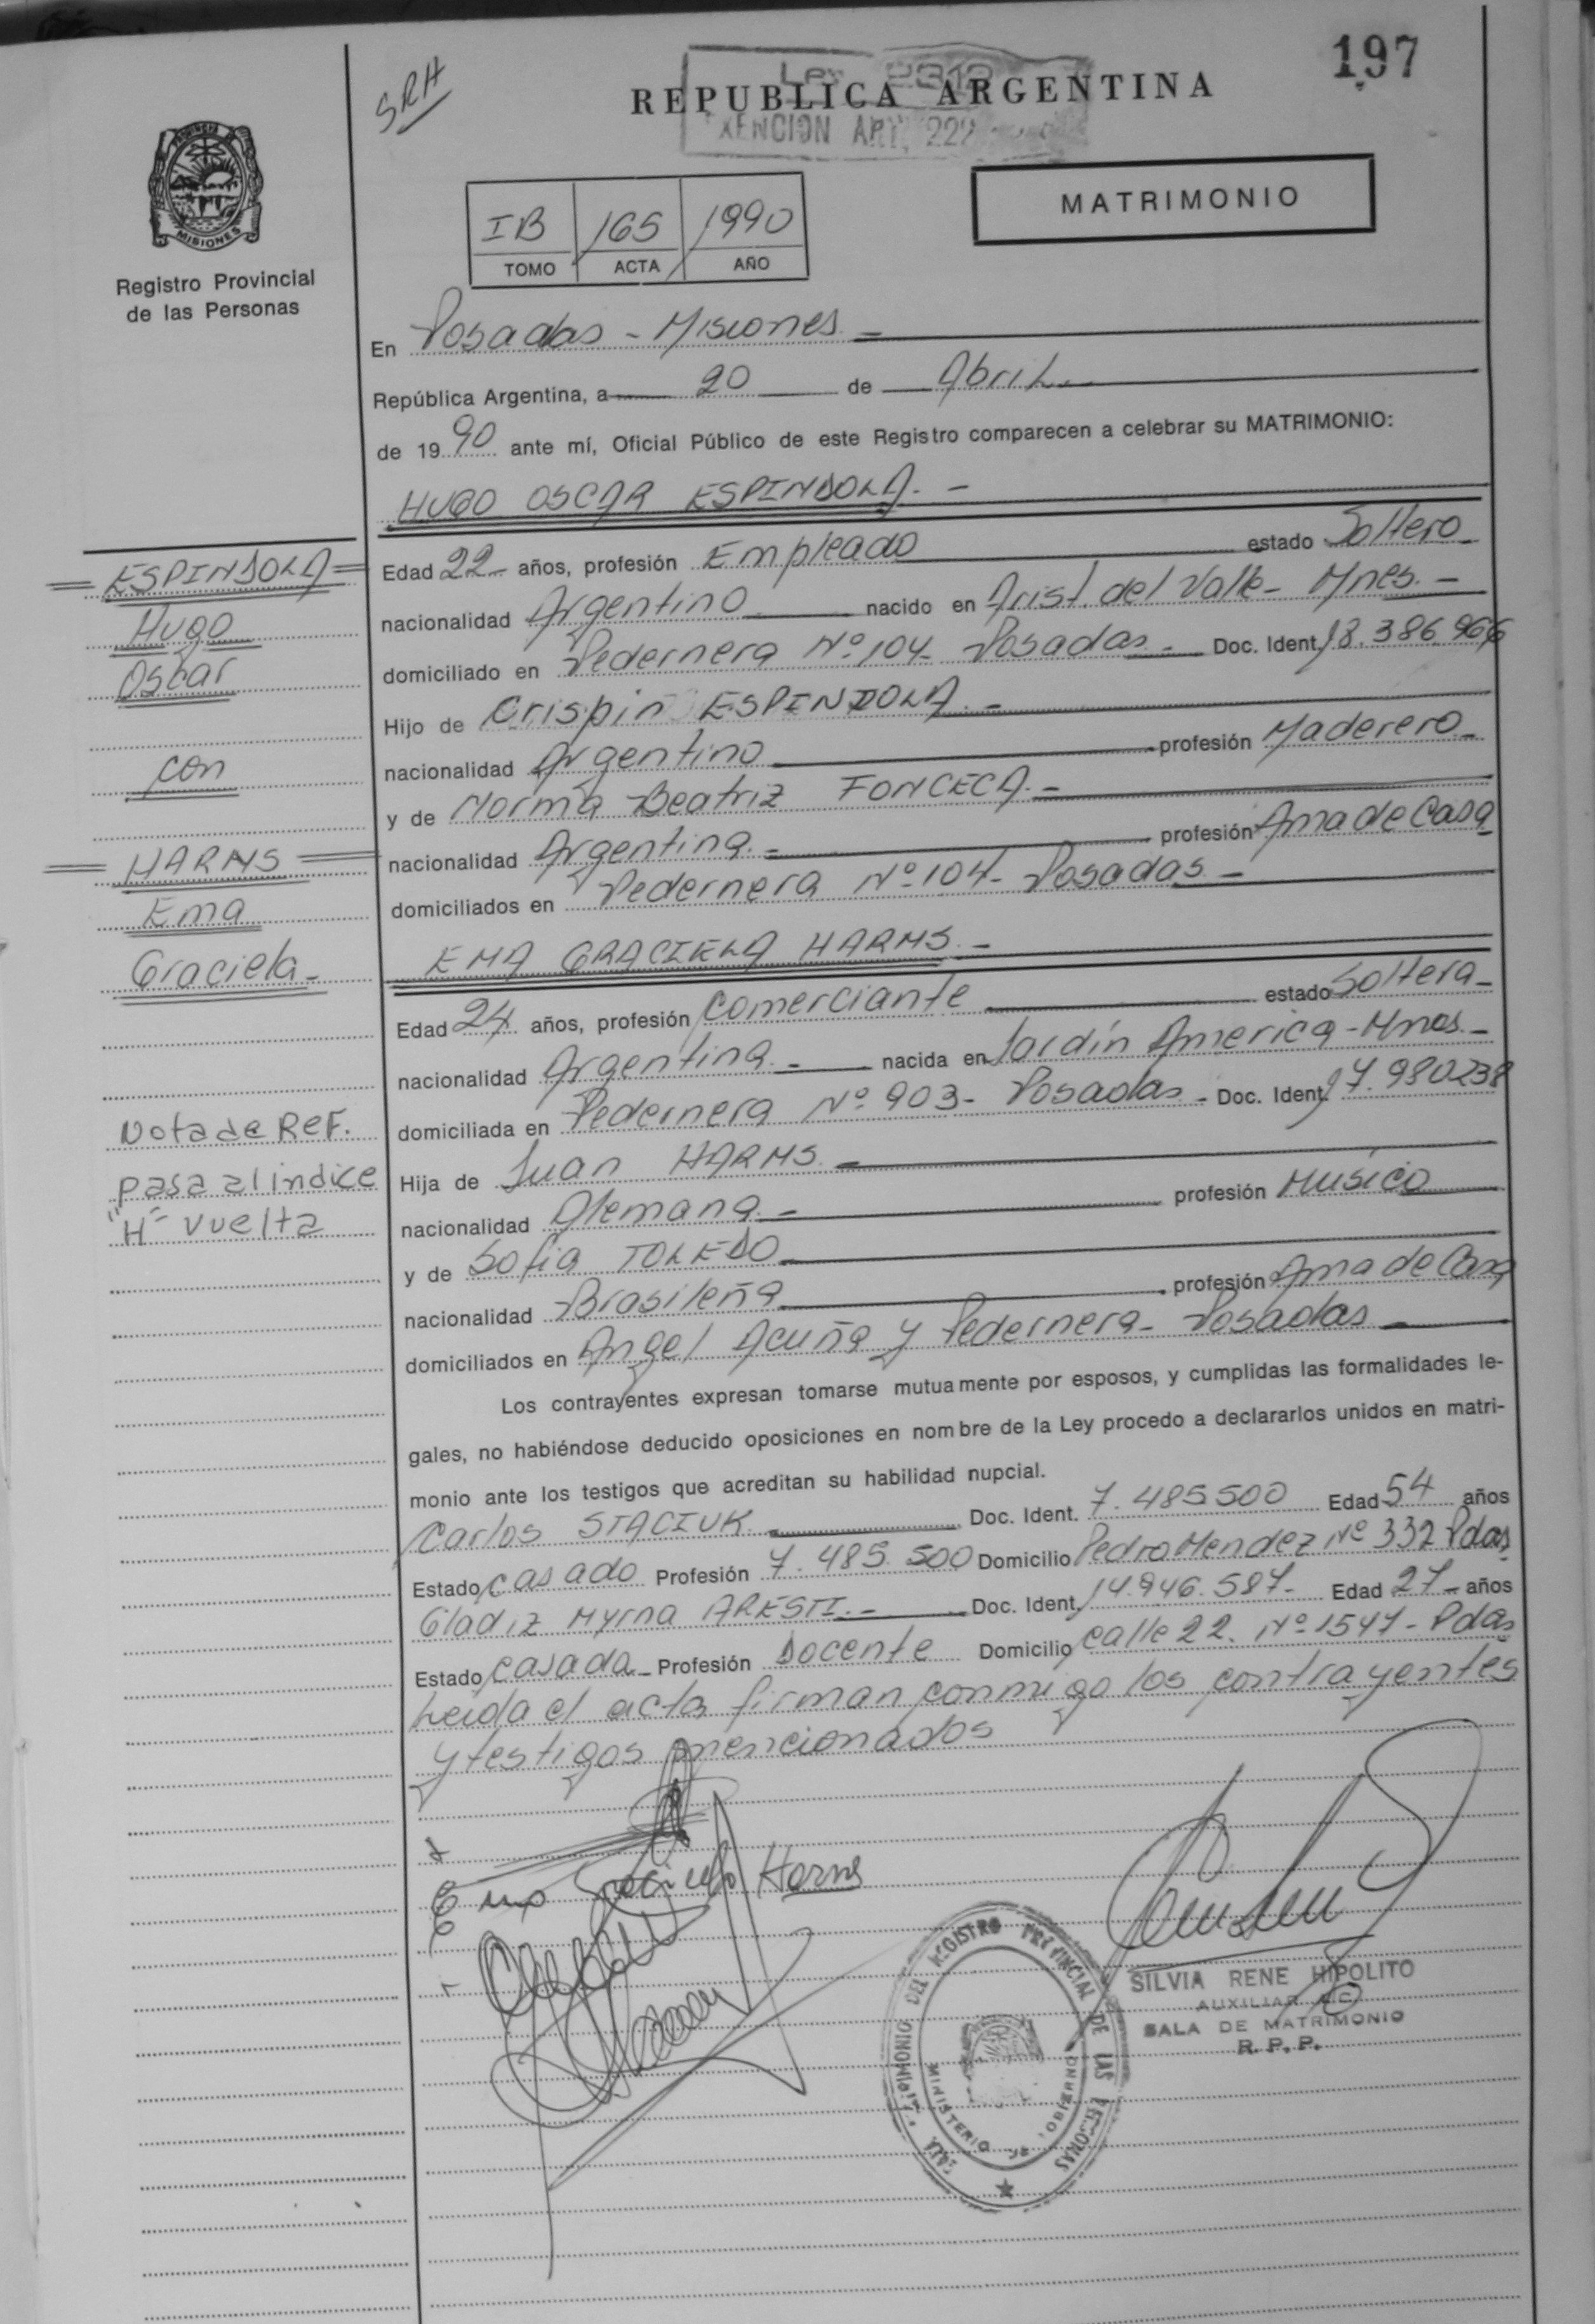 197
SRH
REPUBLICA ARGENTINA
MISIONES
Registro Provincial
de las Personas
MATRIMONIO
IB 165 1990
TOMO ACTA AÑO
En Posadas - Misiones -
República Argentina, a 20 de Abril
de 1990 ante mí, Oficial Público de este Registro comparecen a celebrar su MATRIMONIO:
HUGO OSCAR ESPINDOLA. -
Edad 22 - años, profesión Empleado estado Soltero
nacionalidad Argentino nacido en Arist. del Valle - Mnes. -
domiciliado en Pedernera Nº 104 - Posadas - Doc. Ident. 18.386.966
Hijo de Crispin ESPINDOLA. -
nacionalidad Argentino profesión Maderero -
y de Norma Beatriz FONCECA. -
nacionalidad Argentina. - profesión Ama de Casa
domiciliados en Pedernera Nº 104 - Posadas -
EMA GRACIELA HARMS. -
Edad 24 años, profesión Comerciante estado Soltera -
nacionalidad Argentina. - nacida en Jardín America - Mnes. -
domiciliada en Pedernera Nº 903 - Posadas - Doc. Ident. 17.980238
Hija de Juan HARMS. -
nacionalidad Alemana. - profesión Músico
y de Sofia TOLEDO
nacionalidad Brasileña profesión Ama de Casa
domiciliados en Angel Acuña y Pedernera - Posadas
Los contrayentes expresan tomarse mutuamente por esposos, y cumplidas las formalidades le-
gales, no habiéndose deducido oposiciones en nombre de la Ley procedo a declararlos unidos en matri-
monio ante los testigos que acreditan su habilidad nupcial.
Carlos STACIUK. Doc. Ident. 7.485500 Edad 54 años
Estado Casado Profesión 7.485.500 Domicilio Pedro Mendez Nº 332 Pdas
Gladiz Myrna ARESTI. - Doc. Ident. 14.946.587 - Edad 27 - años
Estado Casada - Profesión Docente Domicilio Calle 22. Nº 1547 - Pdas
Leida el acta firman conmigo los contrayentes
y testigos mencionados
ESPINDOLA
Hugo
Oscar
con
HARMS
Ema
Graciela -
Nota de REF.
pasa al indice
"H" vuelta
Harms
SILVIA RENE HIPOLITO
AUXILIAR
SALA DE MATRIMONIO
R. P. P.
DEL REGISTRO PROVINCIAL DE LAS PERSONAS
MINISTERIO DE GOBIERNO